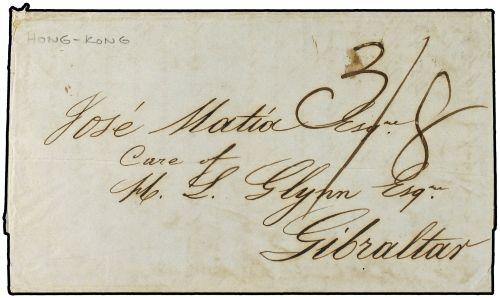 HONG-KONG
3/8
José Matía Esqre
Care of
L. Glynn Esqre
Gibraltar